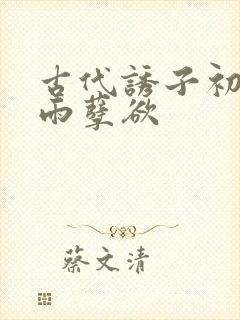 古代誘子初
雨孽欲
蔡文清